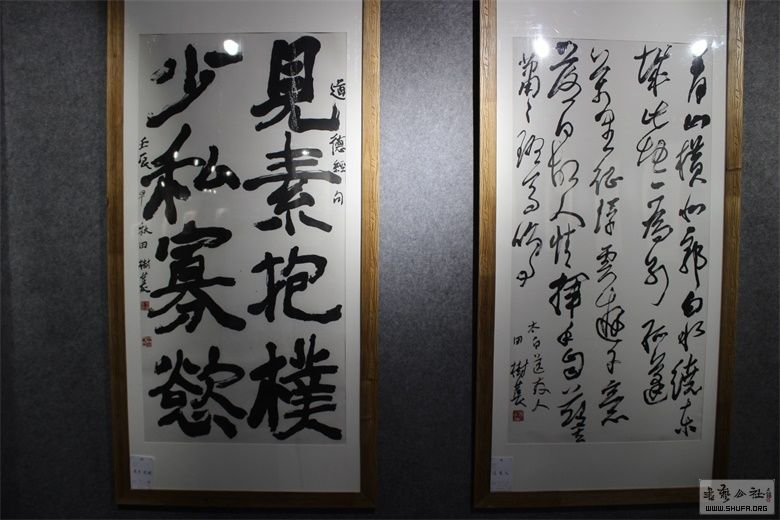 道德經句
見素抱樸
少私寡慾
壬辰早秋田樹萇
青山橫北郭白水繞东
城此地一為別孤蓬
萬里征浮雲遊子意
落日故人情揮手自茲去
蕭々班馬鳴
太白送友人
田樹萇
书艺公社
WWW.SHUFA.ORG